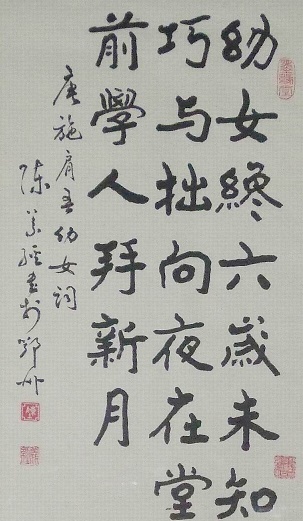 幼女纔六歲未知
巧与拙向夜在堂
前學人拜新月
唐施肩吾幼女詞
陈 書於鄂州